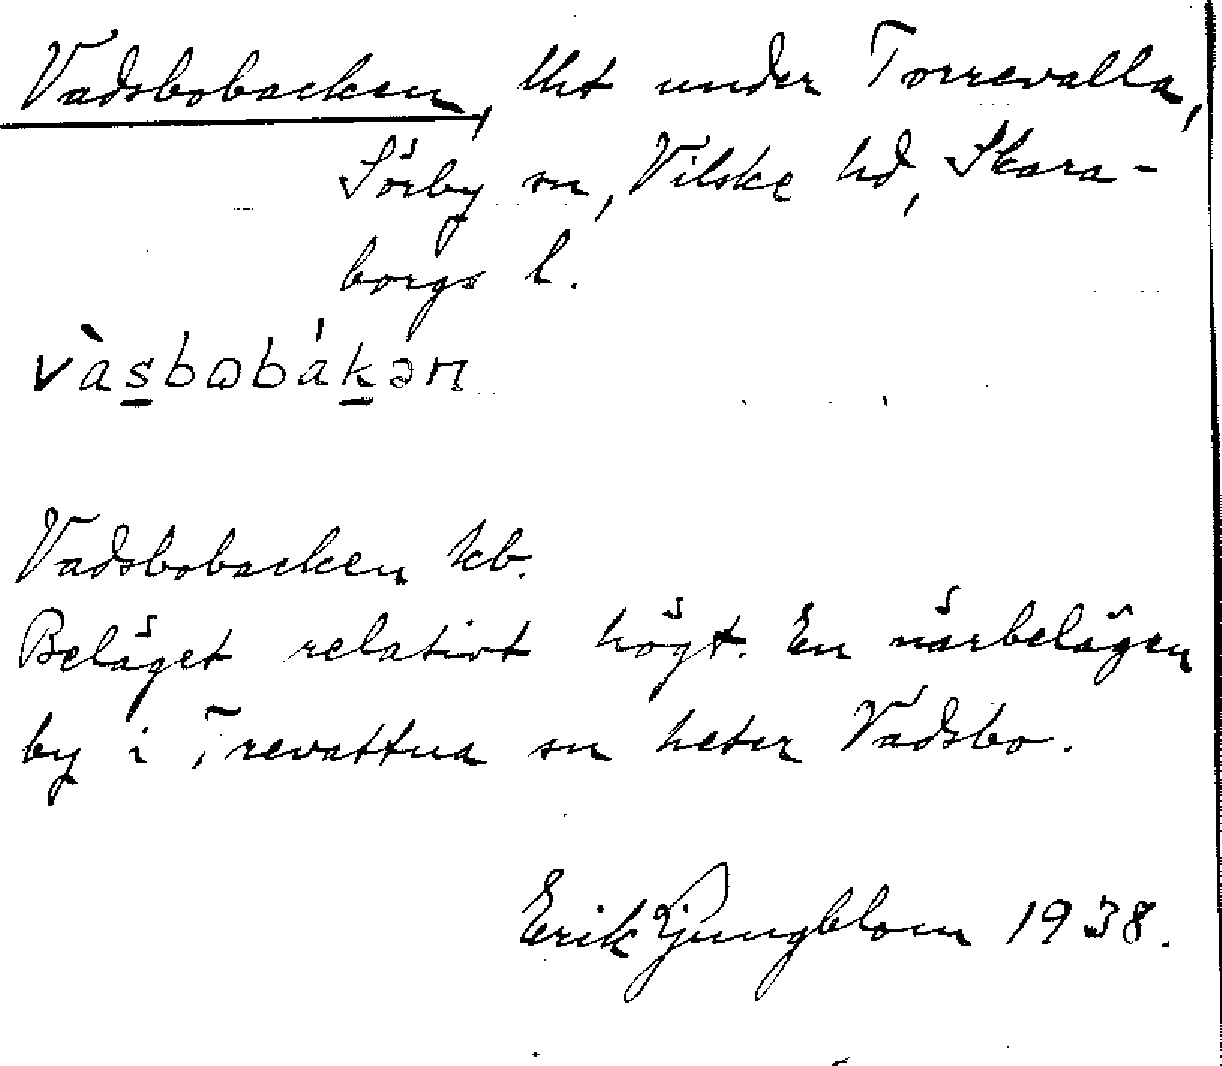 Vadsbobacken, lht under Torrevalla,
Sörby sn, Vilske hd, Skara-
borgs l.
vàsbɷbákən
Vadsbobacken kb.
Beläget relativt högt. En närbelägen
by i Trevattna sn heter Vadsbo.
Erik Ljungblom 1938.